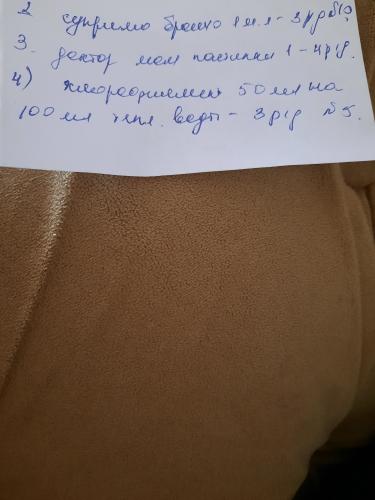 2 суприма бронхо 1 м.л - 3 р/д №10
3. доктор мом пастилки 1 - 4 р/д.
4) хлорофиллипт 50 мл на
100 мл тепл. воды - 3 р/д №5.